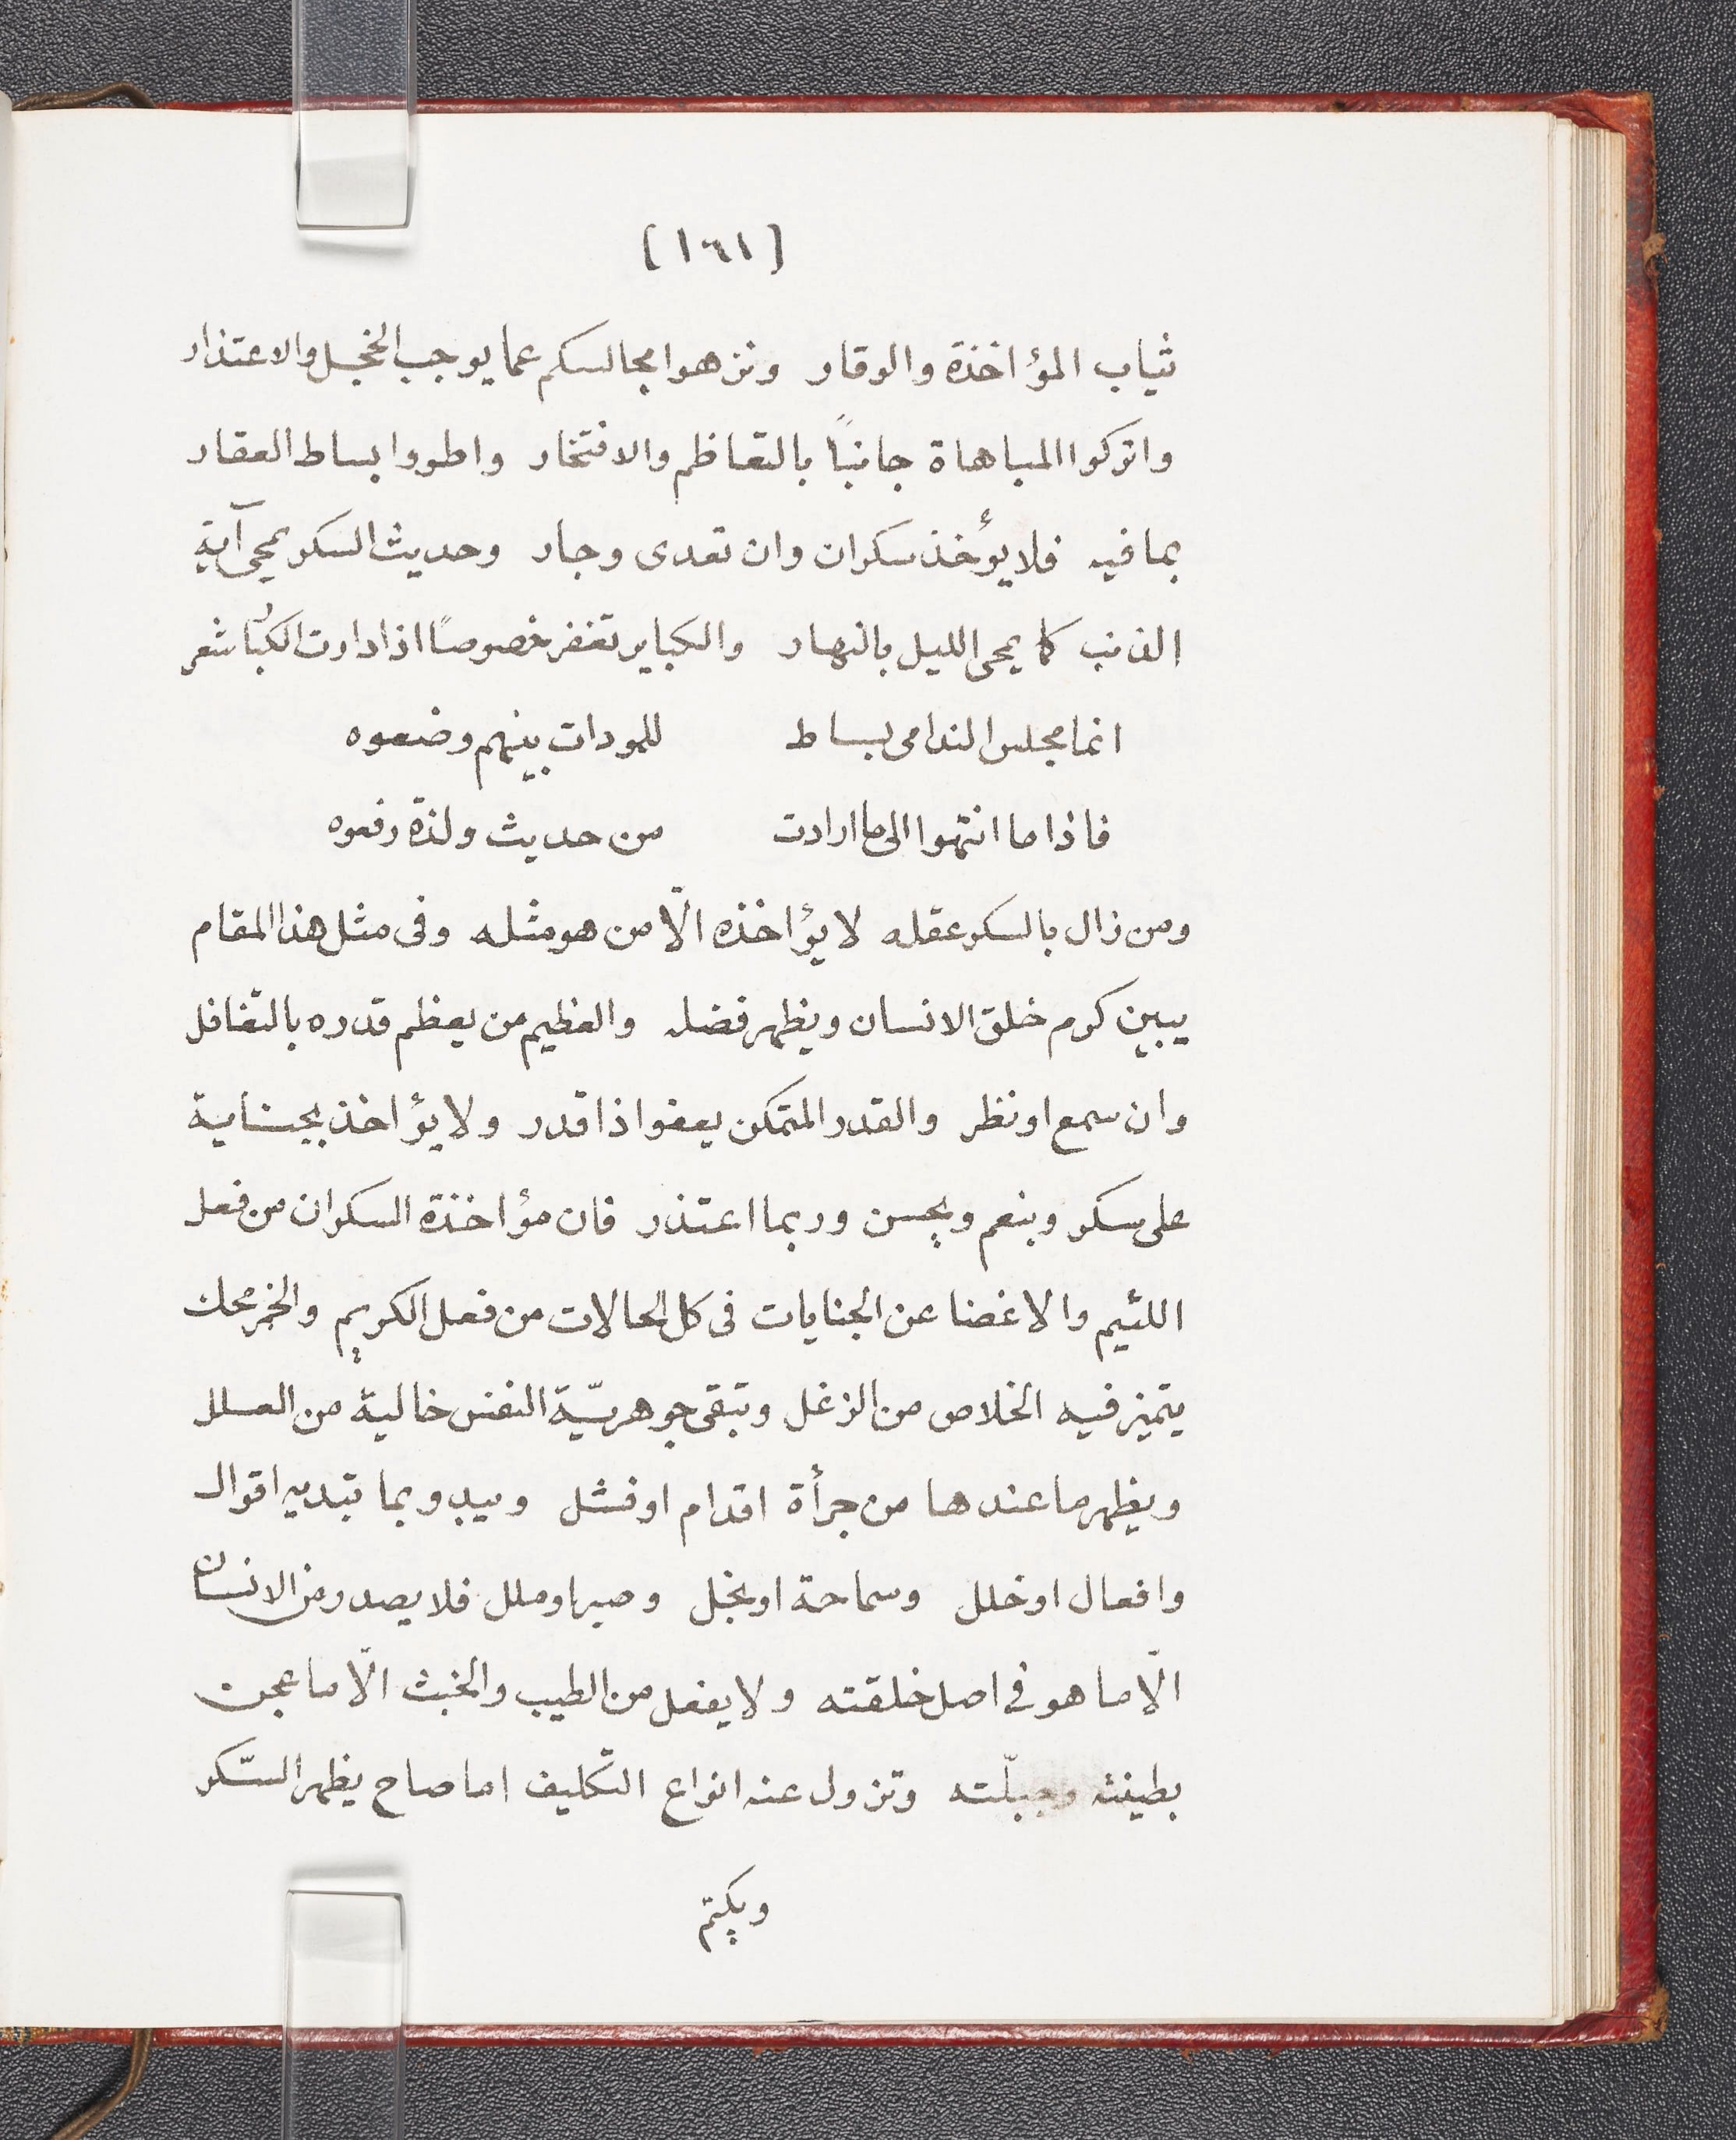 [١٦١]
ثياب المؤاخذة والوقار ونزهوا مجالسكم عما يوجب الخجل والاعتذار
واتركوا المباهاة جانبًا بالتعاظم والافتخار واطووا بساط العقار
بما فيه فلا يؤخذ سكران وان تعدى وجار وحديث السكر يمحى آية
الذنب كما يمحى الليل بالنهار والكباير تغفر خصوصًا اذا دارت الكبار شعر
انما مجلس الندامى بساط للمودات بينهم وضعوه
فاذا ما انتهوا الى ما ارادت من حديث ولذة رفعوه
ومن زال بالسكر عقله لا يؤاخذه الّا من هو مثله وفى مثل هذا المقام
يبين كرم خلق الانسان ويظهر فضله والعظيم من يعظم قدره بالتغافل
وان سمع او نظر والقدر المتمكن يعفوا ذا قدر ولا يؤاخذ بجناية
على سكر وينعم ويحسن وربما اعتذر فان مؤاخذة السكران من فعل
اللئيم والاغضا عن الجنايات فى كل الحالات من فعل الكريم والخمر محك
يتميز فيه الخلاص من الزغل وتبقى جوهريّة النفس خالية من العلل
ويظهر ما عندها من جرأة اقدام او فشل ويبدو بما تبديه اقوال
وافعال او خلل وسماحة او بخل وصبر او ملل فلا يصدر من الانسان
الّا ما هو فى اصل خلقته ولا يفعل من الطيب والخبث الّا ما عجن
بطينته وجبلّته وتزول عنه انواع التكليف اما صاح يظهر السّكر
ويكتم